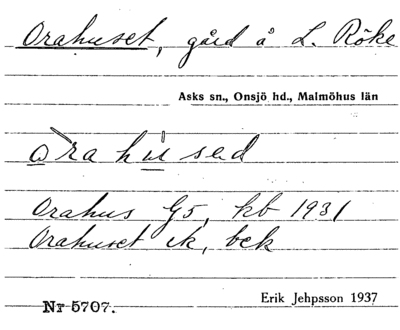 Orahuset, gård å L. Röke
Asks sn., Onsjö hd., Malmöhus län
ora husəd
Orahus G5, kb 1931
Orahuset ek, bek
Nr 5707.
Erik Jehpsson 1937